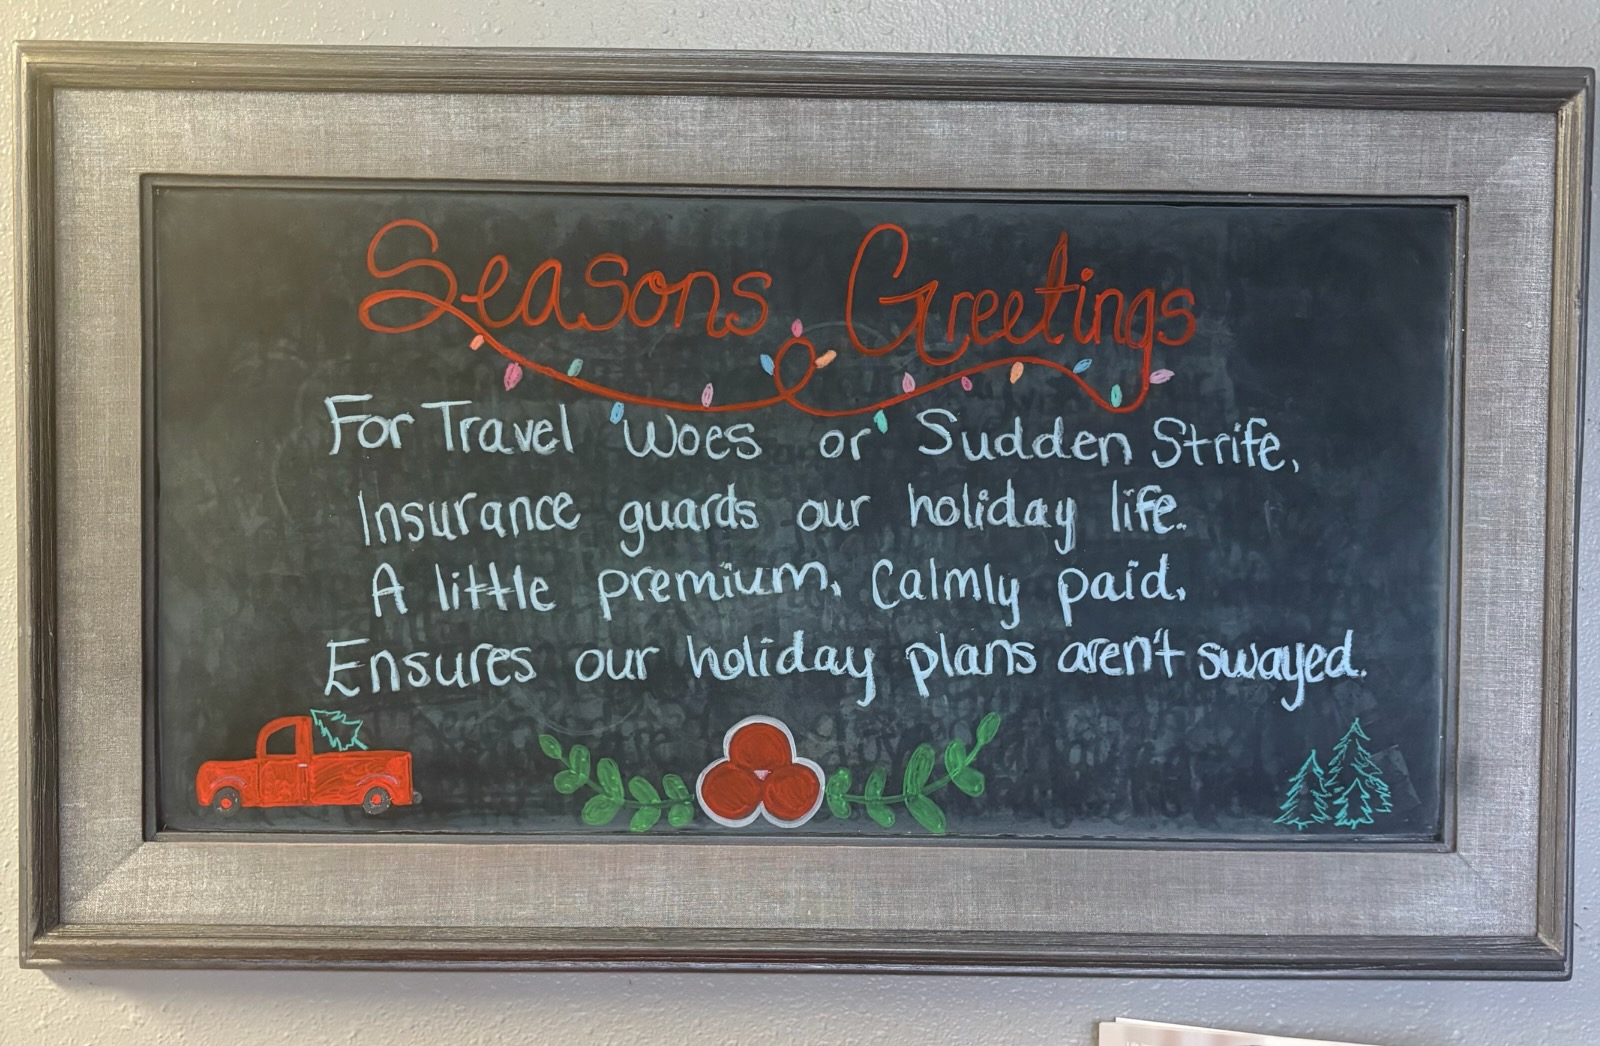 Seasons Greetings
For Travel Woes or Sudden Strife,
Insurance guards our holiday life.
A little premium, Calmly paid,
Ensures our holiday plans aren't swayed.